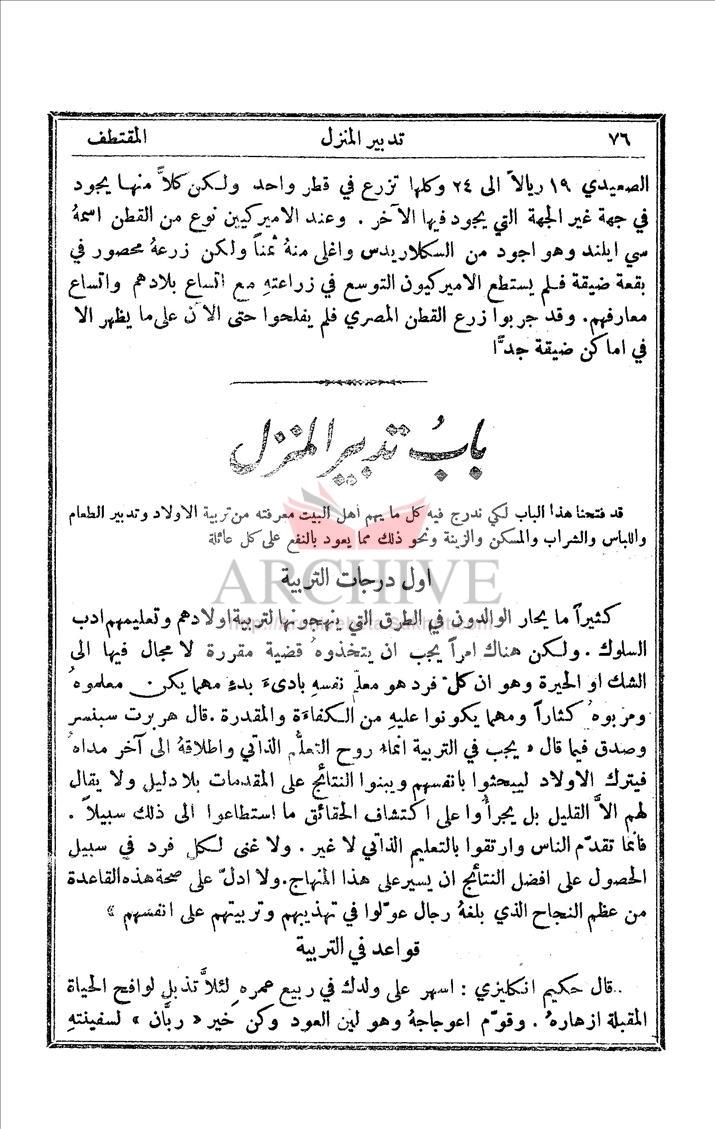 ٧٦ تدبير المنزل المقتطف
الصعيدي ١٩ ريالاً الى ٢٤ وكلها تزرع في قطر واحد ولكن كلاًّ منها يجود
في جهة غير الجهة التي يجود فيها الآخر . وعند الاميركيين نوع من القطن اسمهُ
سي ايلند وهو اجود من السكلاريدس واغلى منهُ ثمناً ولكن زرعهُ محصور في
بقعة ضيقة فلم يستطع الاميركيون التوسع في زراعتهِ مع اتساع بلادهم واتساع
معارفهم. وقد جربوا زرع القطن المصري فلم يفلحوا حتى الآن على ما يظهر الا
في اماكن ضيقة جدًّا
بابُ تدبير المنزل
قد فتحنا هذا الباب لكي ندرج فيه كل ما يهم اهل البيت معرفته من تربية الاولاد وتدبير الطعام
واللباس والشراب والمسكن والزينة ونحو ذلك مما يعود بالنفع على كل عائلة
ARCHIVE
اول درجات التربية
كثيراً ما يحار الوالدون في الطرق التي ينهجونها لتربية اولادهم وتعليمهم ادب
السلوك . ولكن هناك امراً يجب ان يتخذوهُ قضية مقررة لا مجال فيها الى
الشك او الحيرة وهو ان كل فرد هو معلم نفسهِ بادىء بدء مهما يكن معلموهُ
ومربوهُ كثاراً ومهما يكونوا عليهِ من الكفاءة والمقدرة .قال هربرت سبنسر
وصدق فيما قال « يجب في التربية انماء روح التعلُّم الذاتي واطلاقهُ الى آخر مداهُ
فيترك الاولاد ليبحثوا بانفسهم ويبنوا النتائج على المقدمات بلا دليل ولا يقال
لهم الاَّ القليل بل يجرأوا على اكتشاف الحقائق ما استطاعوا الى ذلك سبيلاً .
فانما تقدّم الناس وارتقوا بالتعليم الذاتي لا غير . ولا غنى لكل فرد في سبيل
الحصول على افضل النتائج ان يسير على هذا المنهاج.ولا ادلّ على صحة هذه القاعدة
من عظم النجاح الذي بلغهُ رجال عوّلوا في تهذيبهم وتربيتهم على انفسهم »
قواعد في التربية
..قال حكيم انكليزي : اسهر على ولدك في ربيع عمره لئلاَّ تذبل لوافح الحياة
المقبلة ازهارهُ . وقوّم اعوجاجهُ وهو لين العود وكن خير « ربّان » لسفينتهِ